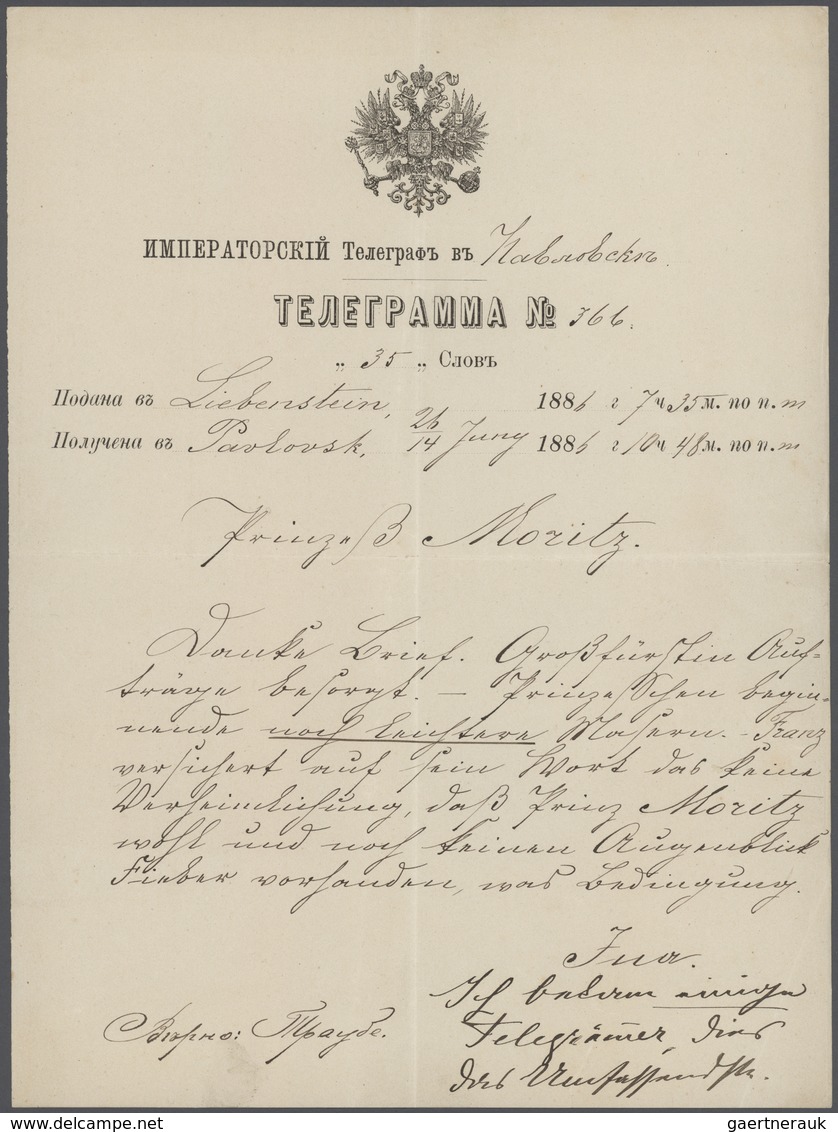 ИМПЕРАТОРСКІЙ Телеграфъ въ Павловскѣ.
ТЕЛЕГРАММА № 366.
„ 35 „ Словъ
Подана въ Liebenstein, 1886 г 7 ч 35 м. по п. m
Получена въ Pavlovsk, 26/14 Juny 1886 г 10 ч 48 м. по п. m
Prinzeß Moritz.
Danke Brief. Großfürstin Auf-
träge besorgt. — Prinzesschen begin-
nende noch leichtere Masern. - Franz
versichert auf sein Wort das keine
Verheimlichung, daß Prinz Moritz
wohl und noch keinen Augenblick
Fieber vorhanden, was Bedingung.
Ina.
Ich bekam einige
Telegramme, dies
das Umfassendste.
Вѣрно: Траубе.
gaertnerauk